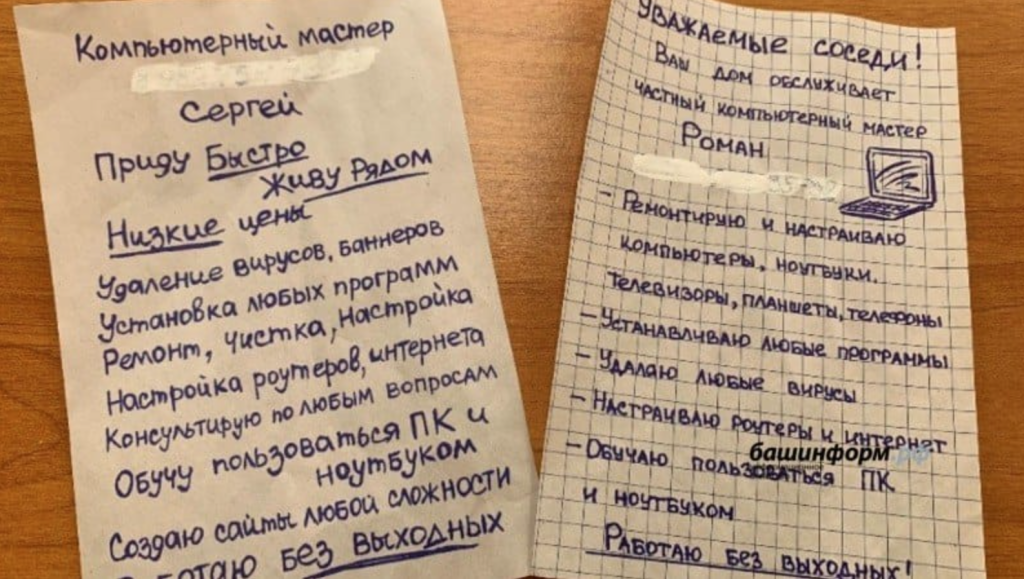 Компьютерный мастер
Сергей
Приду Быстро
Живу Рядом
Низкие цены
Удаление вирусов, баннеров
Установка любых программ
Ремонт, Чистка, Настройка
Настройка роутеров, интернета
Консультирую по любым вопросам
Обучу пользоваться ПК и
ноутбуком
Создаю сайты любой сложности
Работаю без выходных
Уважаемые соседи!
Ваш дом обслуживает
частный компьютерный мастер
Роман
- Ремонтирую и настраиваю
компьютеры, ноутбуки.
телевизоры, планшеты, телефоны
- Устанавливаю любые программы
- Удаляю любые вирусы
- Настраиваю роутеры и интернет
- Обучаю пользоваться ПК
и ноутбуком
Работаю без выходных!
башинформ.рф